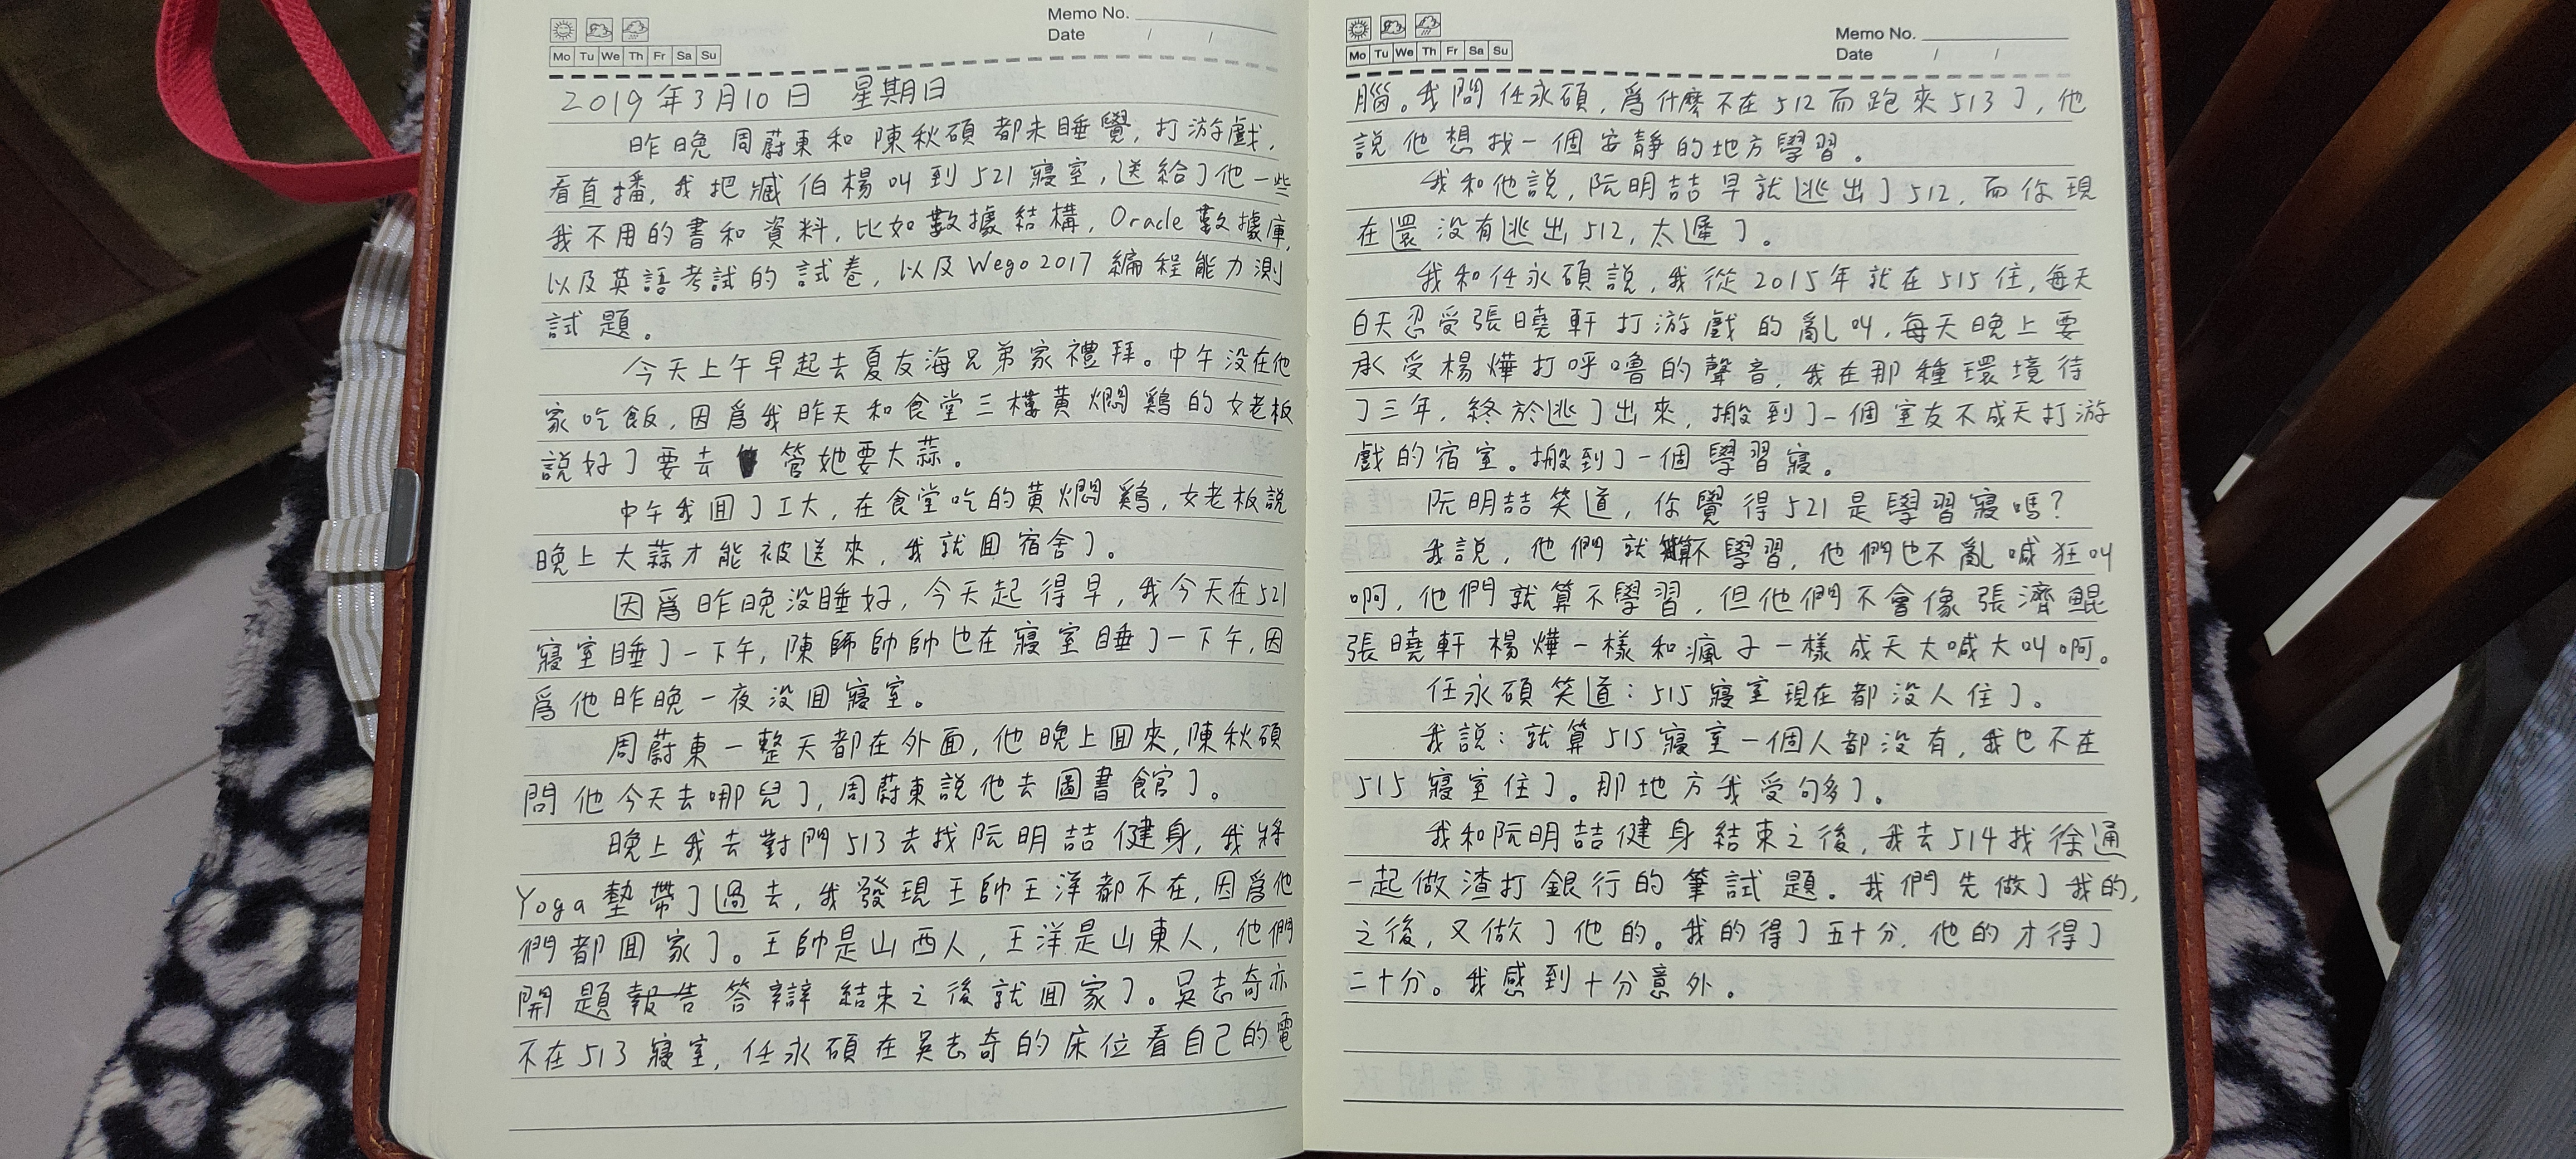 Memo No.
Date / /
Mo Tu We Th Fr Sa Su
2019年3月10日 星期日
昨晚周蔚東和陳秋碩都未睡覺,打游戲,
看直播,我把臧伯楊叫到521寢室,送給了他一些
我不用的書和資料,比如數據結構,Oracle數據庫,
以及英語考試的試卷,以及Wego2017編程能力測
試題。
今天上午早起去夏友海兄弟家禮拜。中午没在他
家吃飯,因爲我昨天和食堂三樓黄燜鷄的女老板
說好了要去管她要大蒜。
中午我囬了工大,在食堂吃的黄燜鷄,女老板説
晚上大蒜才能被送來,我就囬宿舍了。
因爲昨晚没睡好,今天起得早,我今天在521
寢室睡了一下午,陳師帥帥也在寢室睡了一下午,因
爲他昨晚一夜没囬寢室。
周蔚東一整天都在外面,他晚上囬來,陳秋碩
問他今天去哪兒了,周蔚東說他去圖書館了。
晚上我去對門513去找阮明喆健身,我將
Yoga墊帶了過去,我發現王帥王洋都不在,因爲他
們都囬家了。王帥是山西人,王洋是山東人,他們
開題報告答辯結束之後就囬家了。吳志奇亦
不在513寢室,任永碩在吳志奇的床位看自己的電
Memo No.
Date / /
Mo Tu We Th Fr Sa Su
腦。我問任永碩,爲什麽不在512而跑來513了,他
説他想找一個安靜的地方學習。
我和他説,阮明喆早就逃出了512,而你現
在還没有逃出512,太遲了。
我和任永碩説,我從2015年就在515住,每天
白天忍受張曉軒打游戲的亂叫,每天晚上要
承受楊燁打呼嚕的聲音,我在那種環境待
了三年,終於逃了出來,搬到了一個室友不成天打游
戲的宿室。搬到了一個學習寢。
阮明喆笑道,你覺得521是學習寢嗎?
我説,他們就算不學習,他們也不亂喊狂叫
啊,他們就算不學習,但他們不會像張濟鯤
張曉軒楊燁一樣和瘋子一樣成天大喊大叫啊。
任永碩笑道:515寢室現在都没人住了。
我説:就算515寢室一個人都没有,我也不在
515寢室住了。那地方我受夠了。
我和阮明喆健身結束之後,我去514找徐通
一起做渣打銀行的筆試題。我們先做了我的,
之後,又做了他的。我的得了五十分,他的才得了
二十分。我感到十分意外。